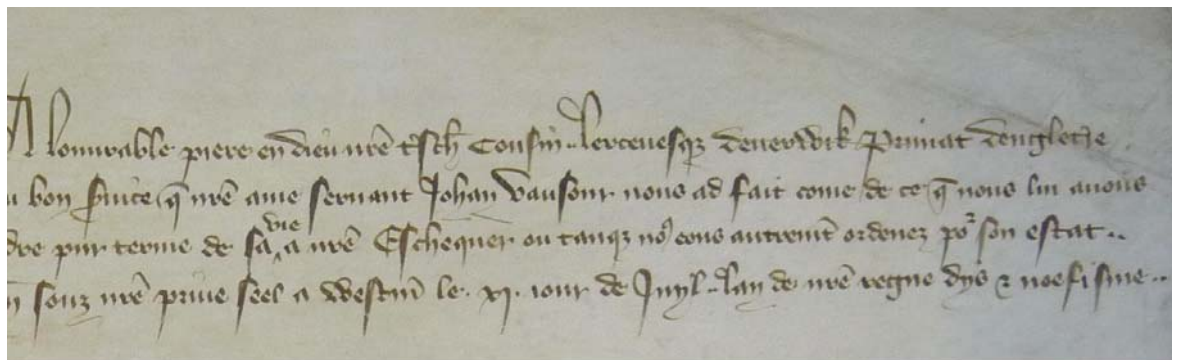 A lonurable piere en dieu nr̄e tˢch̄ Cousin ·· lerceuesqꝫ deuerwik Primat dengleṫre
u bon s̄uice q̄ nr̄e ame seruant Johan Vausour nous ad fait come de ce q̄ nous lui auons
dre pur terme de sa vie a nr̄e Eschequer ou tanqꝫ noꝰ eons autremēt ordenez poʳ son estat ··
souz nr̄e priue seel a Westm̄ le . xj . iour de Juyl ·· lan de nr̄e regne dys ⁊ noefisme ··